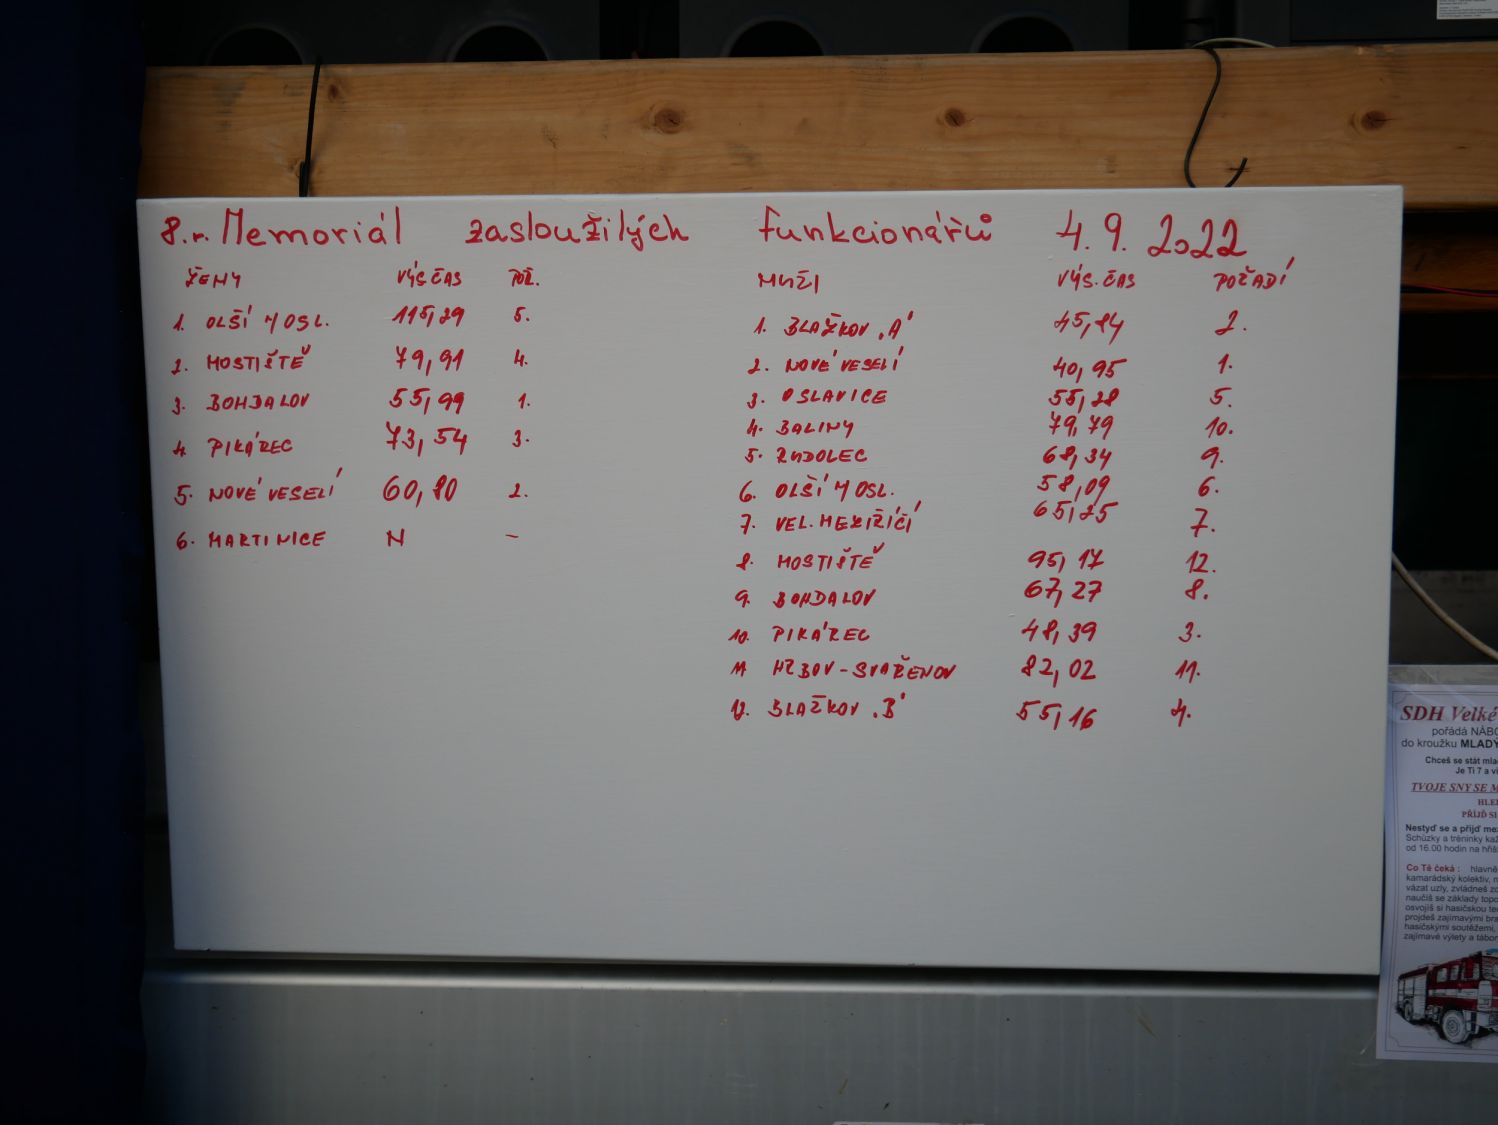 8.r. Memoriál zasloužilých funkcionářů 4.9. 2022
ŽENY VÝS.ČAS POŘ.
1. OLŠÍ N OSL. 115,29 5.
2. MOSTIŠTĚ 79,91 4.
3. BOHDALOV 55,99 1.
4. PIKÁREC 73,54 3.
5. NOVÉ VESELÍ 60,80 2.
6. MARTINICE N –
MUŽI VÝS.ČAS POŘADÍ
1. BLAŽKOV „A" 45,84 2.
2. NOVÉ VESELÍ 40,95 1.
3. OSLAVICE 55,28 5.
4. BALINY 79,79 10.
5. RUDOLEC 68,34 9.
6. OLŠÍ N OSL. 58,09 6.
7. VEL. MEZIŘÍČÍ 65,25 7.
8. MOSTIŠTĚ 95,17 12.
9. BOHDALOV 67,27 8.
10. PIKÁREC 48,39 3.
11 HRBOV-SVAŘENOV 82,02 11.
12. BLAŽKOV „B" 55,16 4.
SDH Velké
pořádá
do kroužku
Chceš se stát
Je Ti 7 a
TVOJE SNY SE
PŘIJĎ
Nestyď se a přijď
Schůzky a tréninky
od 16.00 hodin na
Co Tě čeká : hlavně
kamarádský kolektiv,
vázat uzly, zvládneš
naučíš se základy
osvojíš si hasičskou
projdeš zajímavými
hasičskými soutěžemi,
zajímavé výlety a